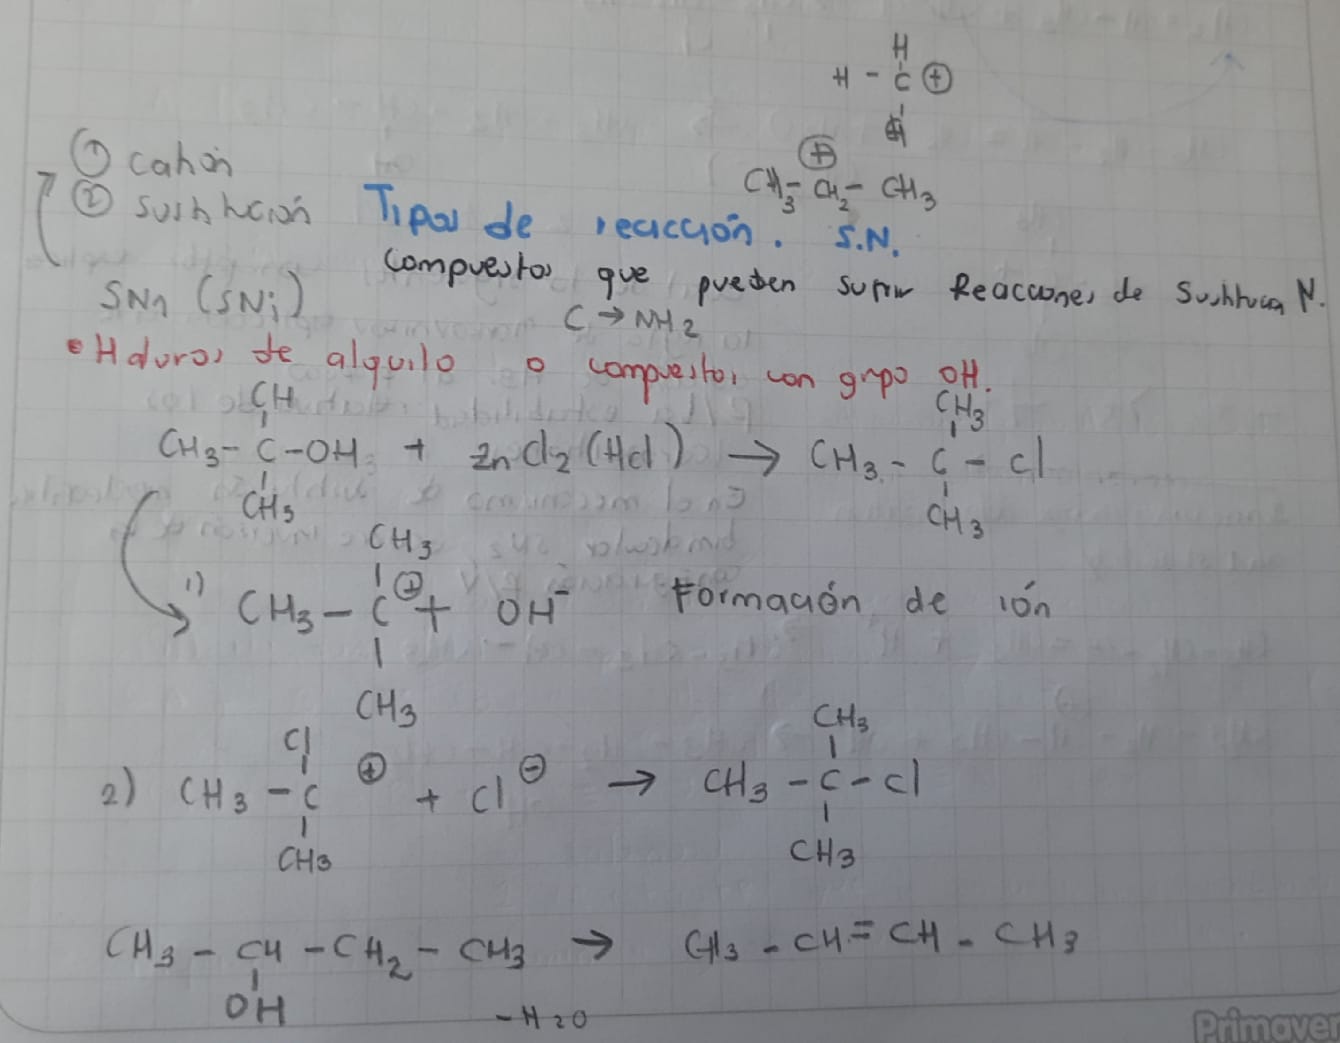 H
H - C ⊕
H
⊕
CH3 - CH2 - CH3
① catión
② Sustitución
Tipos de reacción. S.N.
Compuestos que pueden sufrir Reacciones de Sustitución N.
SN1 (SNi)
C → NH2
• Haluros de alquilo o compuestos con grupo OH.
CH
CH3 - C - OH + ZnCl2 (HCl) → CH3 - C - Cl
CH3
CH3
CH3
CH3
1) CH3 - C⊕ + OH⁻ Formación de ión
CH3
Cl
CH3
2) CH3 - C ⊕ + Cl ⊖ → CH3 - C - Cl
CH3
CH3
CH3 - CH - CH2 - CH3 → CH3 - CH = CH - CH3
OH
-H2O
Primaver